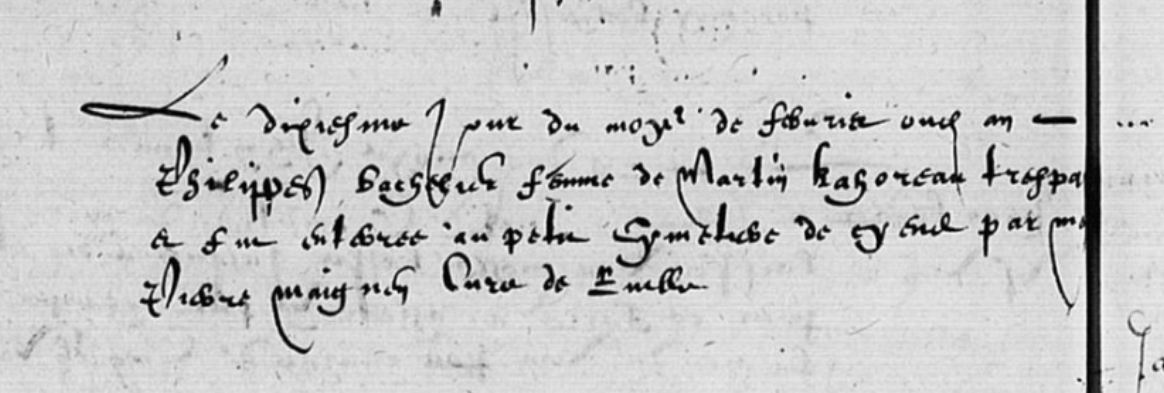 Le dixiesme jour du moys de febvrier oud an
Philippes bachelier femme de Martin kahoreau trespa
et fut enterree au petit Cymetiere de ceyend par m
Pierre maignen Cure de